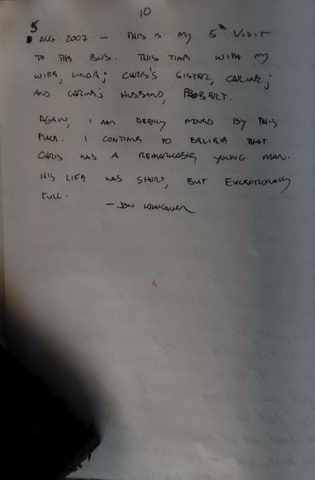 10
5 AUG. 2007 — THIS IS MY 5th VISIT
TO THE BUS. THIS TIME WITH MY
WIFE, LINDA; CHRIS'S SISTER, CARINE;
AND CARINE'S HUSBAND, ROBERT.
AGAIN, I AM DEEPLY MOVED BY THIS
PLACE. I CONTINUE TO BELIEVE THAT
CHRIS WAS A REMARKABLE YOUNG MAN.
HIS LIFE WAS SHORT, BUT EXCEPTIONALLY
FULL.
— JON KRAKAUER